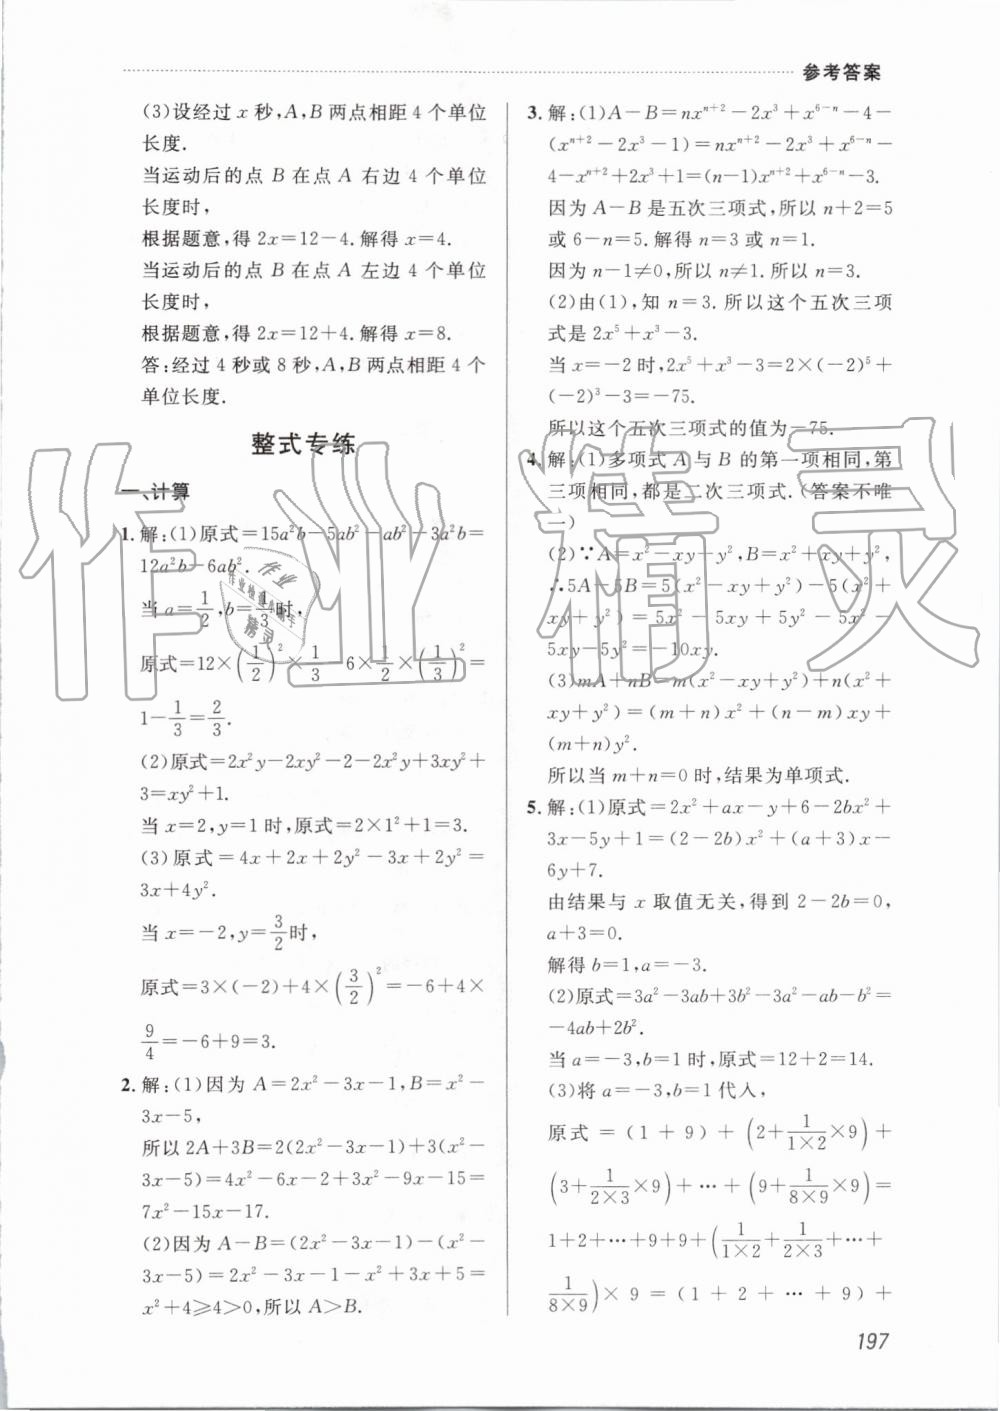 参考答案
(3)设经过 x 秒,A,B 两点相距 4 个单位
长度.
当运动后的点 B 在点 A 右边 4 个单位
长度时,
根据题意,得 2x=12-4.解得 x=4.
当运动后的点 B 在点 A 左边 4 个单位
长度时,
根据题意,得 2x=12+4.解得 x=8.
答:经过 4 秒或 8 秒,A,B 两点相距 4 个
单位长度.
整式专练
一、计算
1. 解:(1)原式=15a²b-5ab²-ab²-3a²b=
12a²b-6ab².
当 a=1/2,b=1/3时,
原式=12×(1/2)²×1/3 6×1/2×(1/3)²=
1-1/3=2/3.
(2)原式=2x²y-2xy²-2-2x²y+3xy²+
3=xy²+1.
当 x=2,y=1 时,原式=2×1²+1=3.
(3)原式=4x+2x+2y²-3x+2y²=
3x+4y².
当 x=-2,y=3/2时,
原式=3×(-2)+4×(3/2)²=-6+4×
9/4=-6+9=3.
2. 解:(1)因为 A=2x²-3x-1,B=x²-
3x-5,
所以 2A+3B=2(2x²-3x-1)+3(x²-
3x-5)=4x²-6x-2+3x²-9x-15=
7x²-15x-17.
(2)因为 A-B=(2x²-3x-1)-(x²-
3x-5)=2x²-3x-1-x²+3x+5=
x²+4≥4>0,所以 A>B.
3. 解:(1)A-B=nxⁿ⁺²-2x³+x⁶⁻ⁿ-4-
(xⁿ⁺²-2x³-1)=nxⁿ⁺²-2x³+x⁶⁻ⁿ-
4-xⁿ⁺²+2x³+1=(n-1)xⁿ⁺²+x⁶⁻ⁿ-3.
因为 A-B 是五次三项式,所以 n+2=5
或 6-n=5.解得 n=3 或 n=1.
因为 n-1≠0,所以 n≠1.所以 n=3.
(2)由(1),知 n=3.所以这个五次三项
式是 2x⁵+x³-3.
当 x=-2 时,2x⁵+x³-3=2×(-2)⁵+
(-2)³-3=-75.
所以这个五次三项式的值为-75.
4. 解:(1)多项式 A 与 B 的第一项相同,第
三项相同,都是二次三项式.(答案不唯
一)
(2)∵A=x²-xy+y²,B=x²+xy+y²,
∴5A-5B=5(x²-xy+y²)-5(x²+
xy+y²)=5x²-5xy+5y²-5x²-
5xy-5y²=-10xy.
(3)mA+nB=m(x²-xy+y²)+n(x²+
xy+y²)=(m+n)x²+(n-m)xy+
(m+n)y².
所以当 m+n=0 时,结果为单项式.
5. 解:(1)原式=2x²+ax-y+6-2bx²+
3x-5y+1=(2-2b)x²+(a+3)x-
6y+7.
由结果与 x 取值无关,得到 2-2b=0,
a+3=0.
解得 b=1,a=-3.
(2)原式=3a²-3ab+3b²-3a²-ab-b²=
-4ab+2b².
当 a=-3,b=1 时,原式=12+2=14.
(3)将 a=-3,b=1 代入,
原式=(1+9)+(2+1/(1×2)×9)+
(3+1/(2×3)×9)+…+(9+1/(8×9)×9)=
1+2+…+9+9+(1/(1×2)+1/(2×3)+…+
1/(8×9))×9=(1+2+…+9)+
197
作业精灵
作业
作业检查小助手
精灵